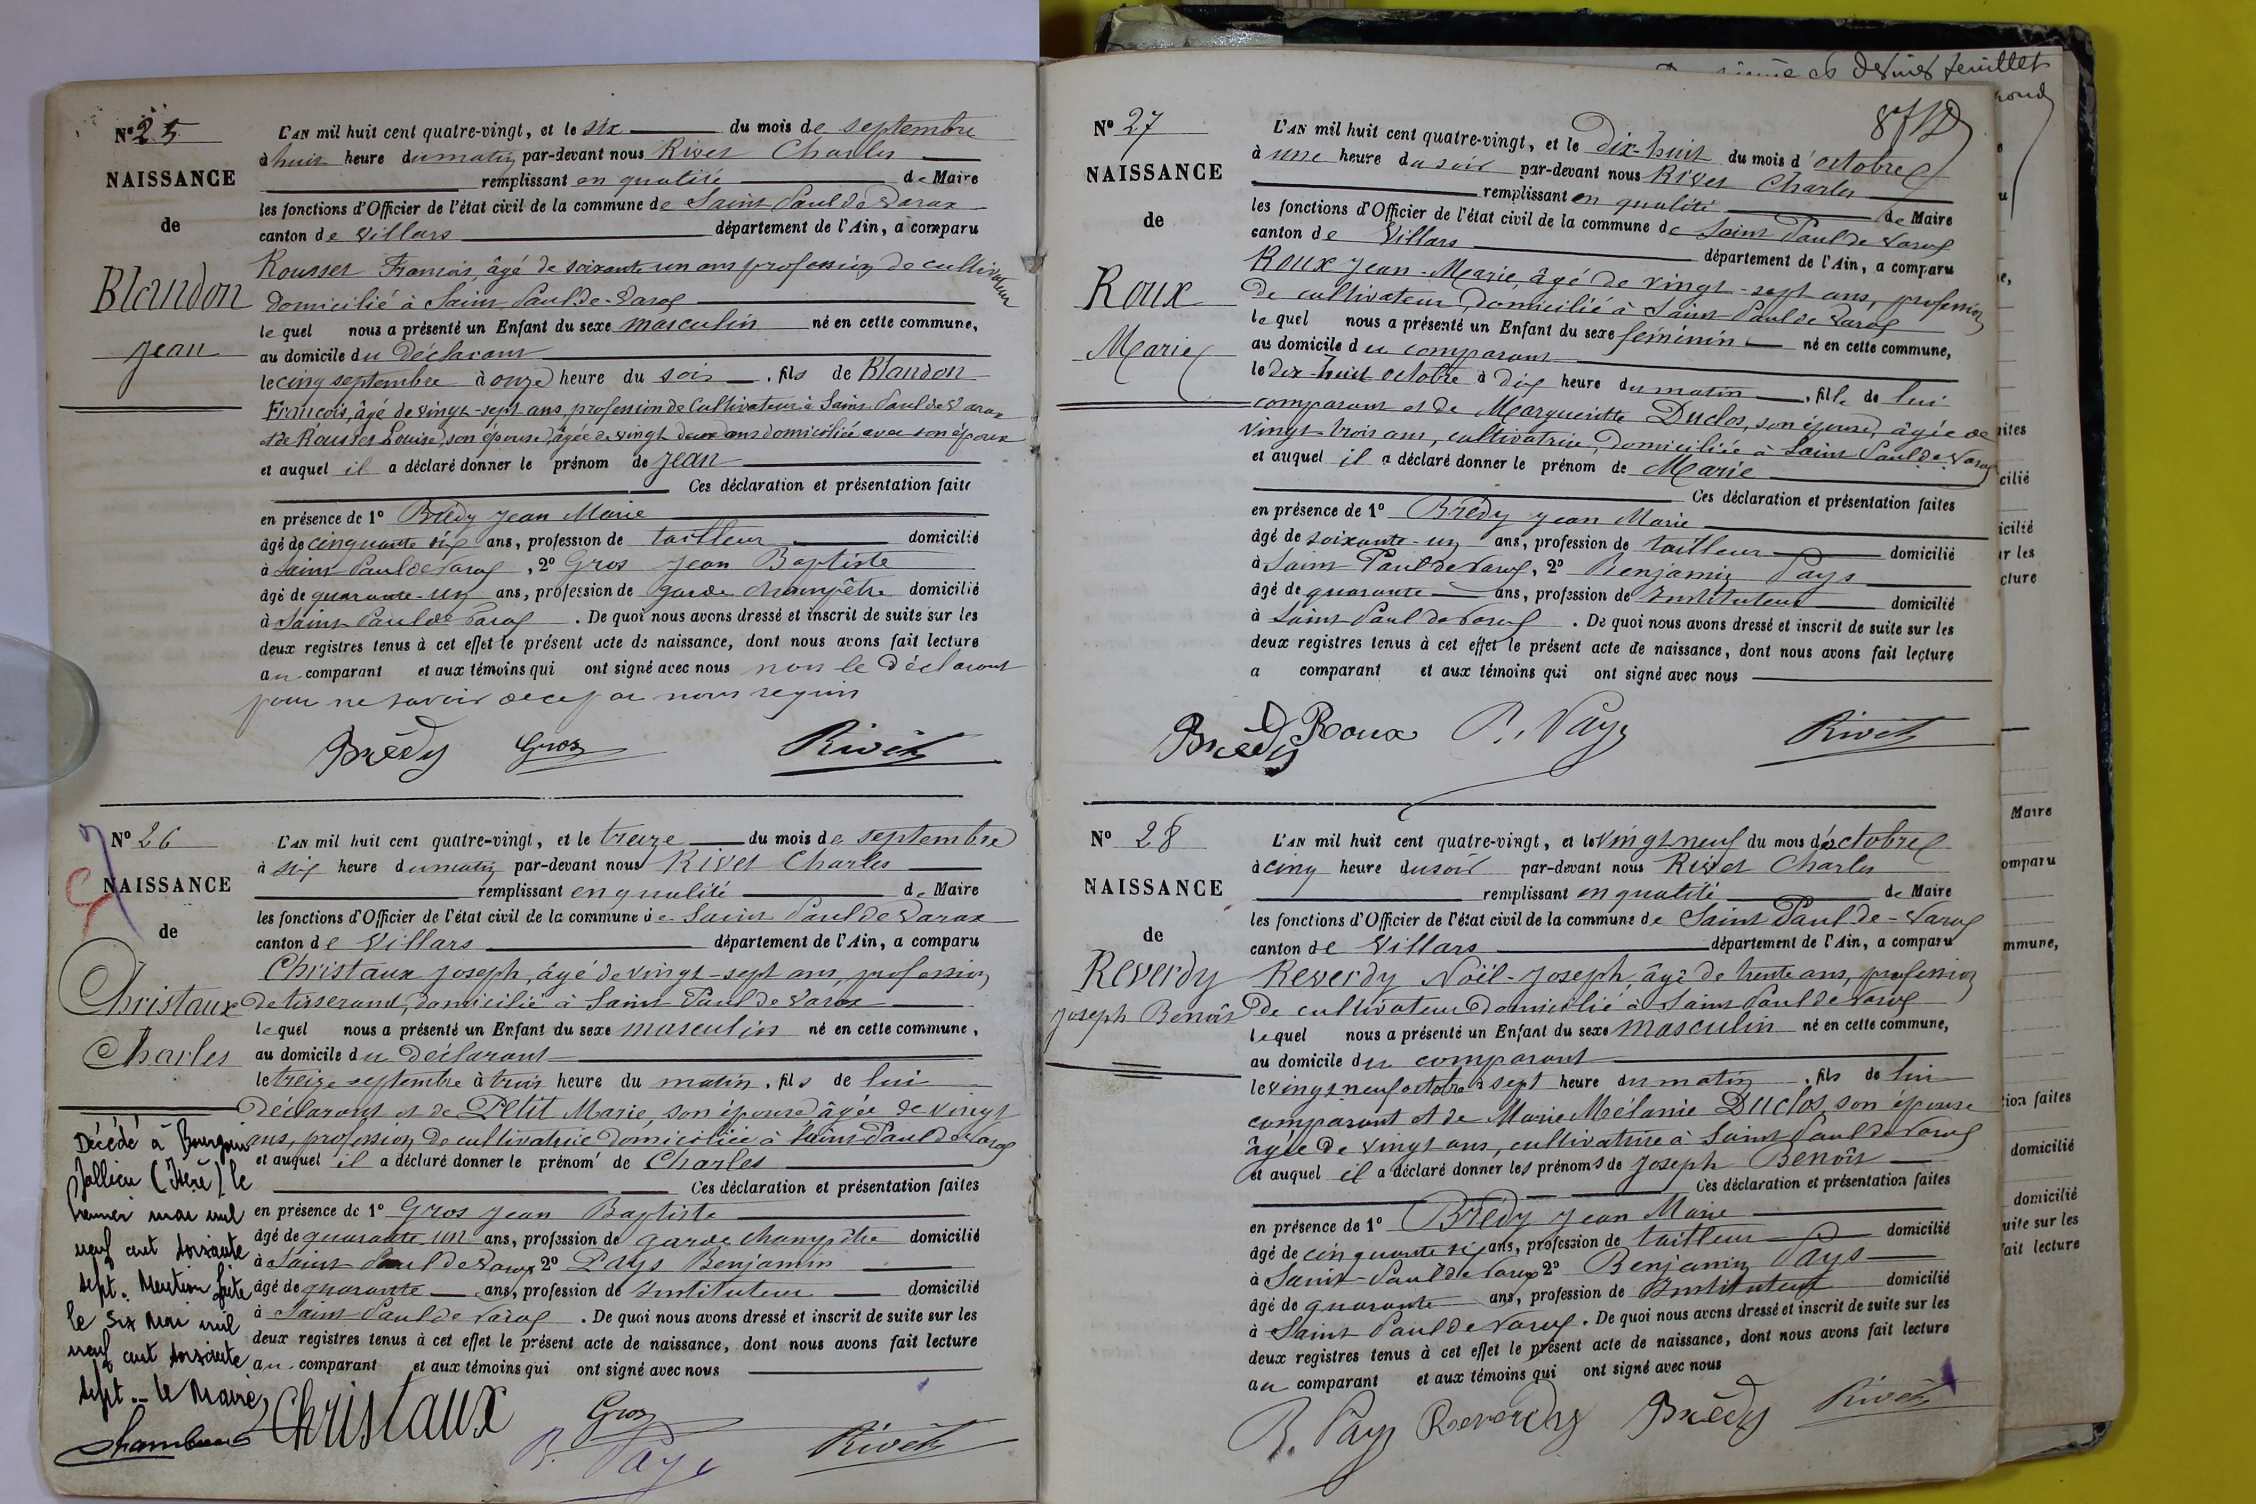 N° 25
NAISSANCE
de
Blandon
Jean
L'AN mil huit cent quatre-vingt, et le six du mois de septembre
à huit heure du matin par-devant nous Rivet Charles
remplissant en qualité de Maire
les fonctions d'Officier de l'état civil de la commune de Saint Paul de Varax
canton de Villars département de l'Ain, a comparu
Rousset François, âgé de soixante un ans profession de cultivateur
domicilié à Saint Paul-de-Varax
lequel nous a présenté un Enfant du sexe masculin né en cette commune,
au domicile du Déclarant
le cinq septembre à onze heure du soir, fils de Blandon
François, âgé de vingt-sept ans, profession de Cultivateur à Saint Paul de Varax
et de Rousset Louise, son épouse, âgée de vingt deux ans domiciliée avec son époux
et auquel il a déclaré donner le prénom de Jean
Ces déclaration et présentation faite
en présence de 1° Brédy Jean Marie
âgé de cinquante six ans, profession de tailleur domicilié
à Saint Paul de Varax, 2° Gros Jean Baptiste
âgé de quarante-un ans, profession de garde champêtre domicilié
à Saint Paul de Varax. De quoi nous avons dressé et inscrit de suite sur les
deux registres tenus à cet effet le présent acte de naissance, dont nous avons fait lecture
au comparant et aux témoins qui ont signé avec nous non le Déclarant
pour ne savoir de ce par nous requis
Brédy Gros Rivet
N° 26
NAISSANCE
de
Christaux
Charles
L'AN mil huit cent quatre-vingt, et le treize du mois de septembre
à six heure du matin par-devant nous Rivet Charles
remplissant en qualité de Maire
les fonctions d'Officier de l'état civil de la commune de Saint Paul de Varax
canton de Villars département de l'Ain, a comparu
Christaux Joseph, âgé de vingt-sept ans, profession
de tisserand, domicilié à Saint Paul de Varax
lequel nous a présenté un Enfant du sexe masculin né en cette commune,
au domicile du Déclarant
le treize septembre à trois heure du matin, fils de lui
Déclarant et de Petit Marie, son épouse âgée de vingt
ans, profession de cultivatrice domiciliée à Saint-Paul de Varax
et auquel il a déclaré donner le prénom de Charles
Ces déclaration et présentation faites
en présence de 1° Gros Jean Baptiste
âgé de quarante un ans, profession de garde champêtre domicilié
à Saint Paul de Varax 2° Pays Benjamin
âgé de quarante ans, profession de Instituteur domicilié
à Saint Paul de Varax. De quoi nous avons dressé et inscrit de suite sur les
deux registres tenus à cet effet le présent acte de naissance, dont nous avons fait lecture
au comparant et aux témoins qui ont signé avec nous
Décédé à Bourgoin
Jallieu (Isère) le
premier mai mil
neuf cent soixante
sept. Mention faite
le six mai mil
neuf cent soixante
sept. - Le Maire,
Christaux Gros
B. Pays Rivet
N° 27
NAISSANCE
de
Roux
Marie
L'AN mil huit cent quatre-vingt, et le dix-huit du mois d'octobre
à une heure du soir par-devant nous Rivet Charles
remplissant en qualité de Maire
les fonctions d'Officier de l'état civil de la commune de Saint Paul de Varax
canton de Villars département de l'Ain, a comparu
Roux Jean-Marie, âgé de vingt-sept ans, profession
de cultivateur, domicilié à Saint Paul de Varax
lequel nous a présenté un Enfant du sexe féminin né en cette commune,
au domicile du comparant
le dix-huit octobre à dix heure du matin, fille de lui
comparant et de Margueritte Duclos, son épouse, âgée de
vingt trois ans, cultivatrice, domiciliée à Saint Paul de Varax
et auquel il a déclaré donner le prénom de Marie
Ces déclaration et présentation faites
en présence de 1° Brédy Jean Marie
âgé de soixante-un ans, profession de tailleur domicilié
à Saint Paul de Varax, 2° Benjamin Pays
âgé de quarante ans, profession de Instituteur domicilié
à Saint Paul de Varax. De quoi nous avons dressé et inscrit de suite sur les
deux registres tenus à cet effet le présent acte de naissance, dont nous avons fait lecture
a comparant et aux témoins qui ont signé avec nous
Brédy Roux B. Pays Rivet
N° 28
NAISSANCE
de
Reverdy
Joseph Benoît
L'AN mil huit cent quatre-vingt, et le vingt neuf du mois d'octobre
à cinq heure du soir par-devant nous Rivet Charles
remplissant en qualité de Maire
les fonctions d'Officier de l'état civil de la commune de Saint Paul-de-Varax
canton de Villars département de l'Ain, a comparu
Reverdy Noël-Joseph, âgé de trente ans, profession
de cultivateur domicilié à Saint Paul de Varax
lequel nous a présenté un Enfant du sexe masculin né en cette commune,
au domicile du comparant
le vingt neuf octobre à sept heure du matin, fils de lui
comparant et de Marie Mélanie Duclos, son épouse
âgée de vingt ans, cultivatrice à Saint Paul de Varax
et auquel il a déclaré donner les prénoms de Joseph Benoît
Ces déclaration et présentation faites
en présence de 1° Brédy Jean Marie
âgé de cinquante six ans, profession de tailleur domicilié
à Saint-Paul de Varax 2° Benjamin Pays
âgé de quarante ans, profession de Instituteur domicilié
à Saint Paul de Varax. De quoi nous avons dressé et inscrit de suite sur les
deux registres tenus à cet effet le présent acte de naissance, dont nous avons fait lecture
au comparant et aux témoins qui ont signé avec nous
B. Pays Reverdy Brédy Rivet